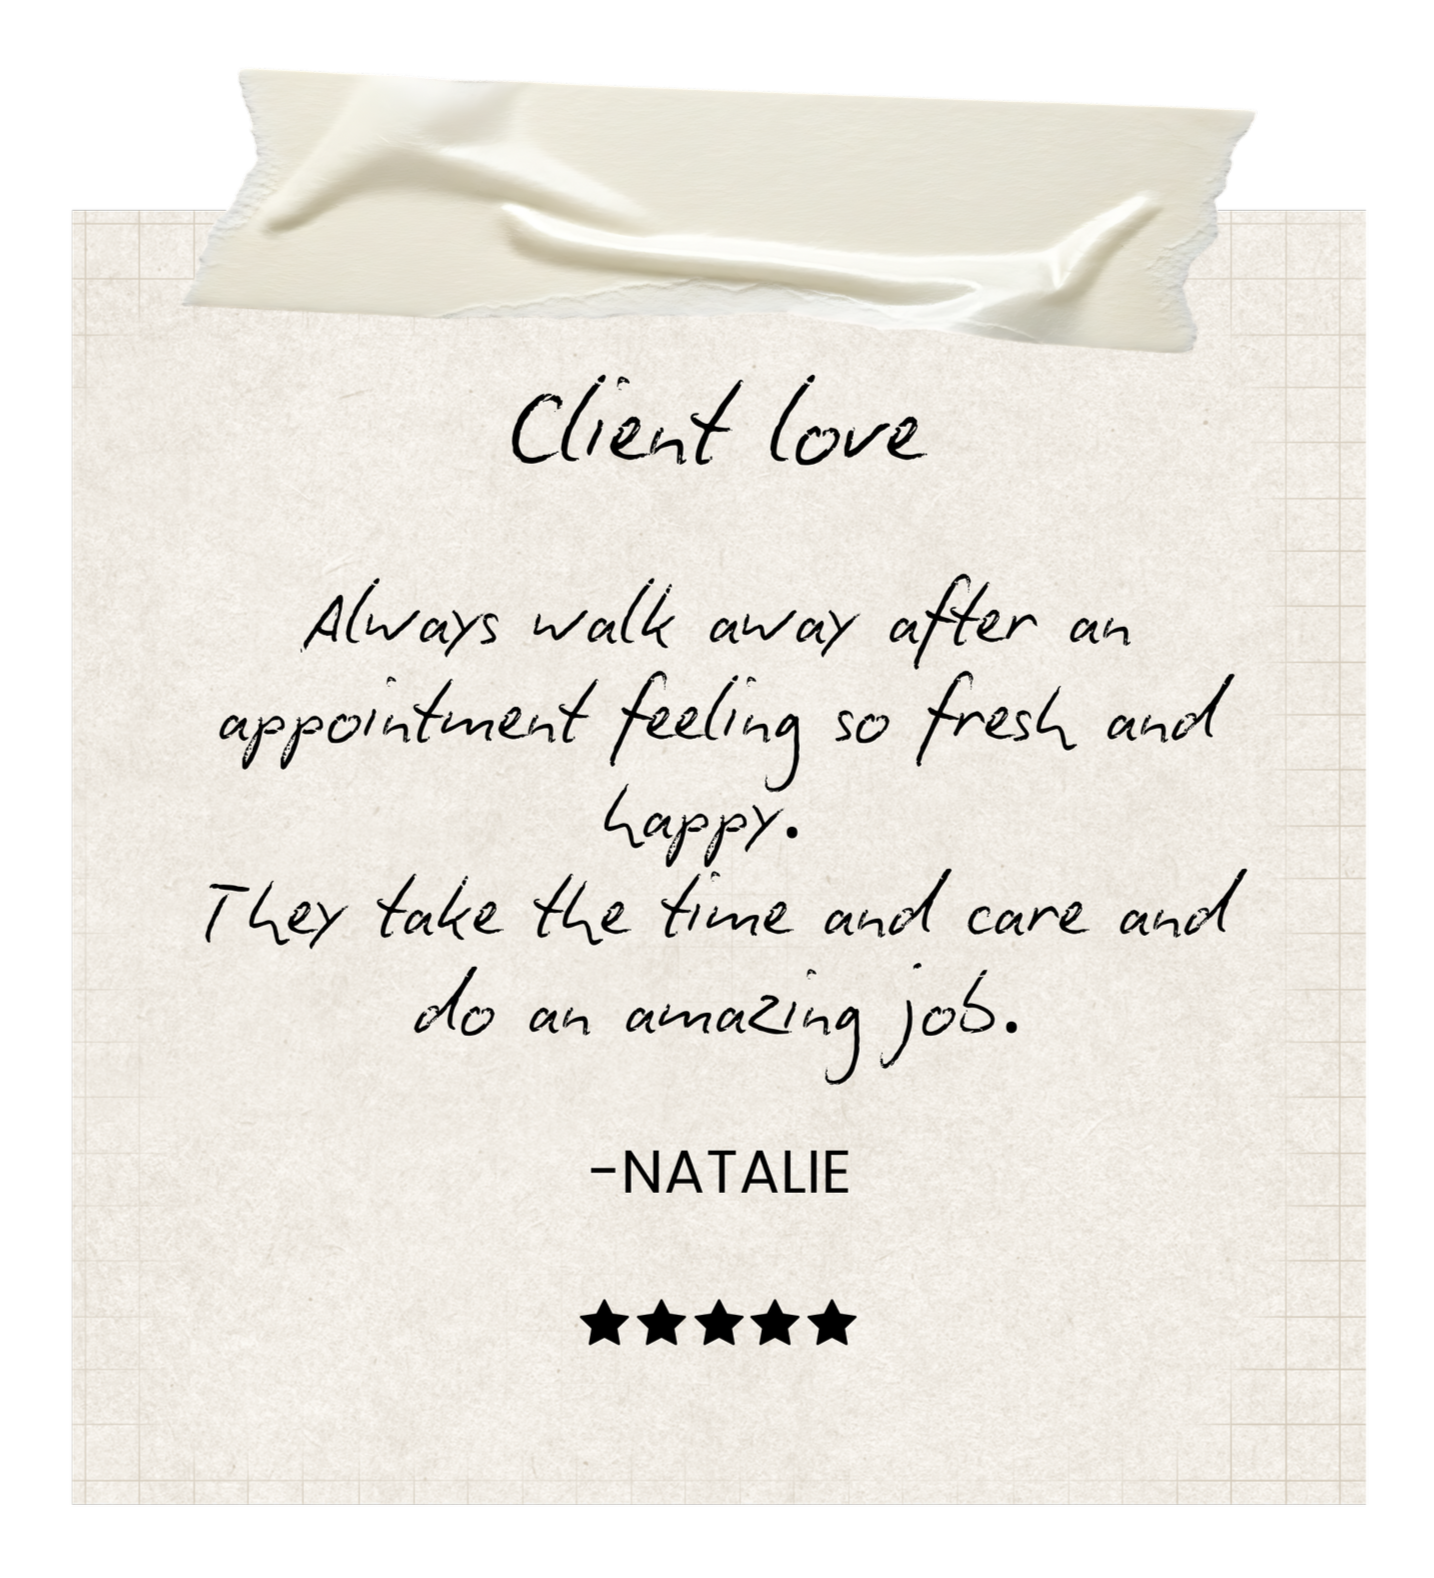 Client love
Always walk away after an
appointment feeling so fresh and
happy.
They take the time and care and
do an amazing job.
-NATALIE
★★★★★